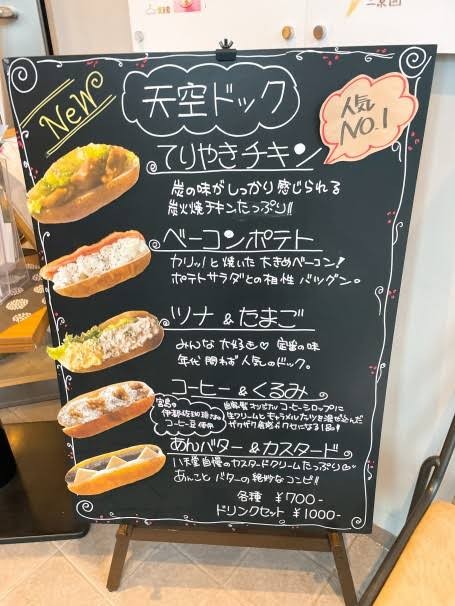 NeW
天空ドック
人気
NO.1
てりやきチキン
炭の味がしっかり感じられる
炭火焼チキンたっぷり!!
ベーコンポテト
カリッと焼いた大きめベーコン!
ポテトサラダとの相性バツグン。
ツナ&たまご
みんな大好き♡定番の味
年代問わず人気のドック。
コーヒー&くるみ
宮島の
伊都岐珈琲さんの
コーヒー豆使用
自家製オリジナルコーヒーシロップに
生クリームとキャラメルナッツを混ぜ込んだ
ザクザク食感がクセになる1品!!
あんバター&カスタード
天空自慢のカスタードクリームたっぷり♡
あんことバターの絶妙なコンビ!!
各種 ¥700-
ドリンクセット ¥1000-